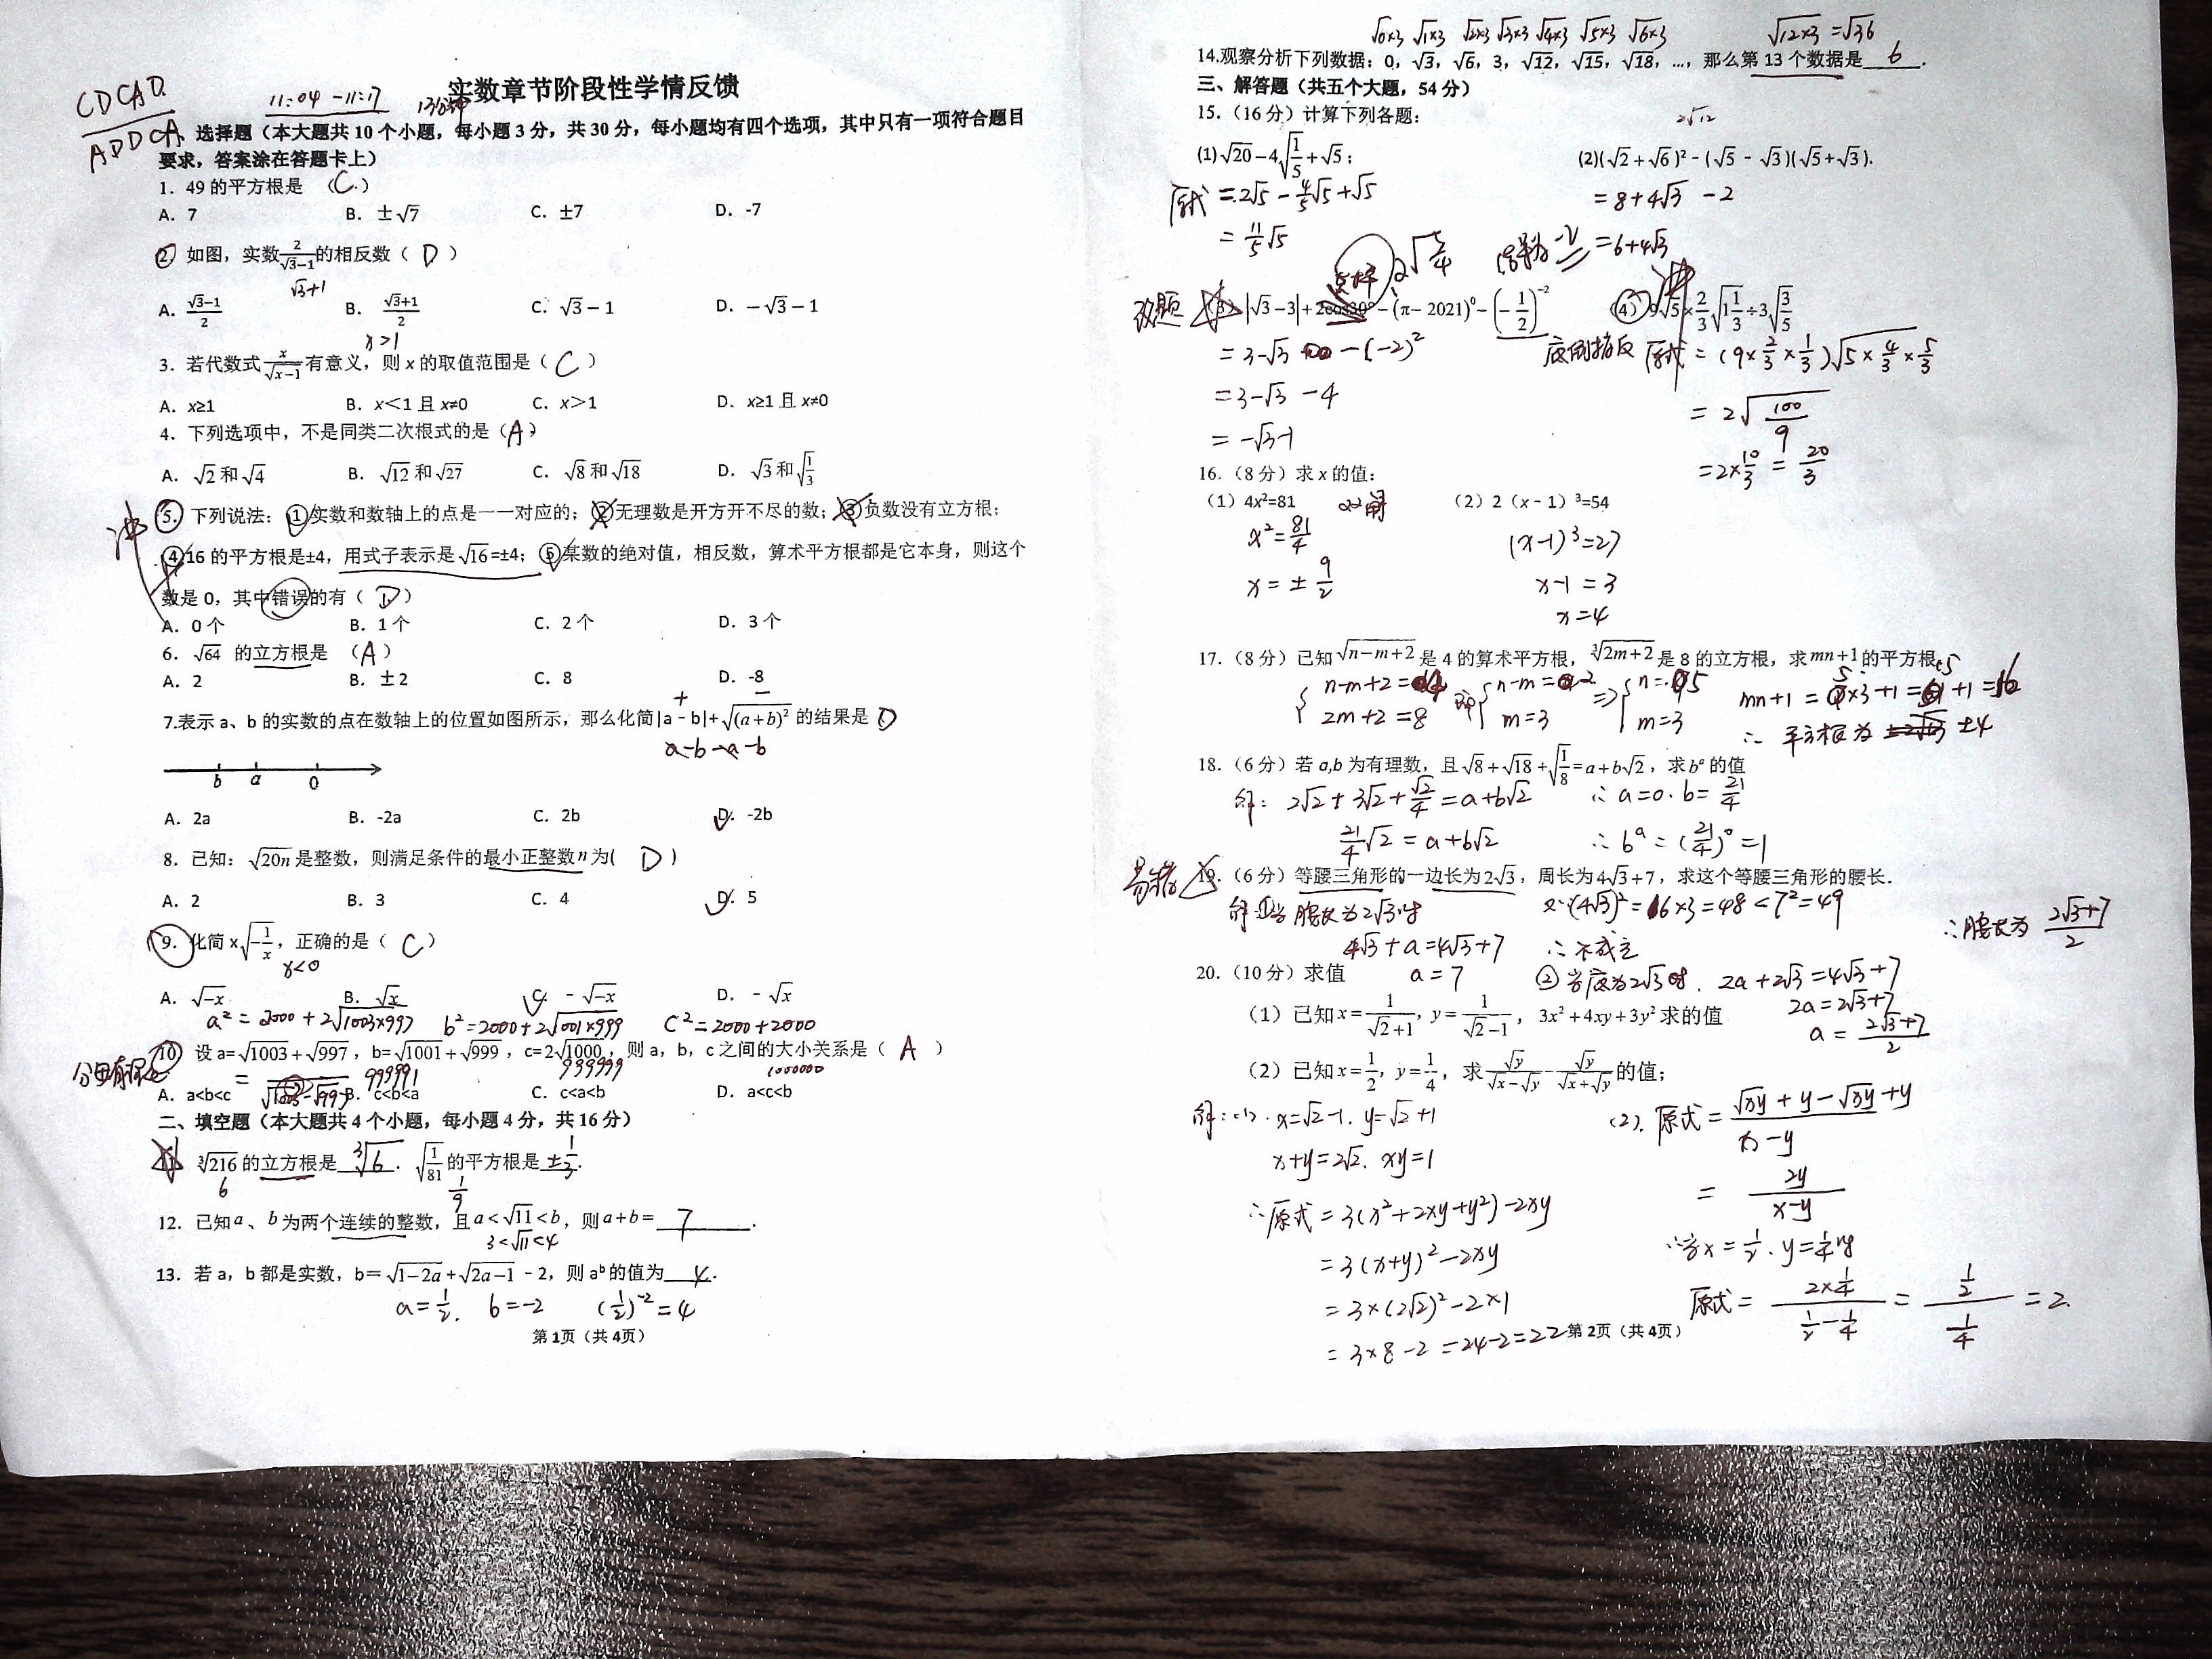 CDCAD
ADDCA
11:04 -11:17
13分钟
实数章节阶段性学情反馈
选择题（本大题共 10 个小题，每小题 3 分，共 30 分，每小题均有四个选项，其中只有一项符合题目
要求，答案涂在答题卡上）
1. 49 的平方根是 （C）
A. 7 B. ±√7 C. ±7 D. -7
2. 如图，实数 2/(√3-1) 的相反数（ D ）
√3+1
A. (√3-1)/2 B. (√3+1)/2 C. √3-1 D. -√3-1
x>1
3. 若代数式 x/√(x-1) 有意义，则 x 的取值范围是（ C ）
A. x≥1 B. x＜1 且 x≠0 C. x＞1 D. x≥1 且 x≠0
4. 下列选项中，不是同类二次根式的是（A）
A. √2 和 √4 B. √12 和 √27 C. √8 和 √18 D. √3 和 √(1/3)
冲
5. 下列说法：①实数和数轴上的点是一一对应的；②无理数是开方开不尽的数；③负数没有立方根；
④16 的平方根是±4，用式子表示是 √16=±4；⑤某数的绝对值，相反数，算术平方根都是它本身，则这个
数是 0，其中错误的有（ D ）
A. 0 个 B. 1 个 C. 2 个 D. 3 个
6. √64 的立方根是 （A）
A. 2 B. ±2 C. 8 D. -8
+ −
7.表示 a、b 的实数的点在数轴上的位置如图所示，那么化简|a-b|+√((a+b)²) 的结果是 D
a-b-a-b
b a 0
A. 2a B. -2a C. 2b D. -2b
8. 已知：√(20n) 是整数，则满足条件的最小正整数 n 为( D )
A. 2 B. 3 C. 4 D. 5
9. 化简 x√(-1/x)，正确的是（ C ）
x<0
A. √(-x) B. √x C. -√(-x) D. -√x
a²=2000+2√(1003×997) b²=2000+2√(1001×999) c²=2000+2000
10 设 a=√1003+√997，b=√1001+√999，c=2√1000，则 a，b，c 之间的大小关系是（ A ）
分母有理化
999991 999999 1000000
A. a<b<c B. c<b<a C. c<a<b D. a<c<b
二、填空题（本大题共 4 个小题，每小题 4 分，共 16 分）
11 ∛216 的立方根是 ∛6. √(1/81) 的平方根是 ±1/3.
6 1/9
12. 已知 a、b 为两个连续的整数，且 a<√11<b，则 a+b= 7 .
3<√11<4
13. 若 a，b 都是实数，b=√(1-2a)+√(2a-1) - 2，则 aᵇ 的值为 4.
a=1/2. b=-2 (1/2)⁻²=4
第 1页（共 4页）
√0×3 √1×3 √2×3 √3×3 √4×3 √5×3 √6×3 √12×3=√36
14.观察分析下列数据：0，√3，√6，3，√12，√15，√18，…，那么第 13 个数据是 6 .
三、解答题（共五个大题，54 分）
15.（16 分）计算下列各题：
2√12
(1)√20-4√(1/5)+√5； (2)(√2+√6)²-(√5-√3)(√5+√3).
原式=2√5-4/5√5+√5 =8+4√3-2
=11/5√5 =6+4√3
改题
(3) |√3-3|+2cos30°-(π-2021)⁰-(-1/2)⁻² (4) 9√5×2/3√(1 1/3)÷3√(3/5)
=3-√3 -(-2)² 底倒指反 原式=(9×2/3×1/3)√(5×4/3×5/3)
=3-√3-4 =2√(100/9)
=-√3-1 =2×10/3=20/3
16.（8 分）求 x 的值：
（1）4x²=81 （2）2（x-1）³=54
x²=81/4 (x-1)³=27
x=±9/2 x-1=3
x=4
17.（8 分）已知 √(n-m+2) 是 4 的算术平方根，∛(2m+2) 是 8 的立方根，求 mn+1 的平方根
2m+2=8 m=3 m=3
∴ 平方根为 ±4
18.（6 分）若 a,b 为有理数，且 √8+√18+√(1/8)=a+b√2，求 bᵃ 的值
解：2√2+3√2+√2/4=a+b√2 ∴a=0.b=21/4
21/4√2=a+b√2 ∴bᵃ=(21/4)⁰=1
易错
19.（6 分）等腰三角形的一边长为 2√3，周长为 4√3+7，求这个等腰三角形的腰长.
解①当腰长为2√3时 又∵(4√3)²=16×3=48<7²=49
4√3+a=4√3+7 ∴不成立 ∴腰长为 (2√3+7)/2
a=7 ②当底为2√3时. 2a+2√3=4√3+7
2a=2√3+7
a=(2√3+7)/2
20.（10 分）求值
（1）已知 x=1/(√2+1)，y=1/(√2-1)，3x²+4xy+3y² 求的值
（2）已知 x=1/2，y=1/4，求 √y/(√x-√y)-√y/(√x+√y) 的值；
解:(1).x=√2-1.y=√2+1 (2).原式=(√xy+y-√xy+y)/(x-y)
x+y=2√2.xy=1 =2y/(x-y)
∴原式=3(x²+2xy+y²)-2xy ∴当x=1/2.y=1/4时
=3(x+y)²-2xy 原式=(2×1/4)/(1/2-1/4)=(1/2)/(1/4)=2.
=3×(2√2)²-2×1
=3×8-2=24-2=22
第 2页（共 4页）